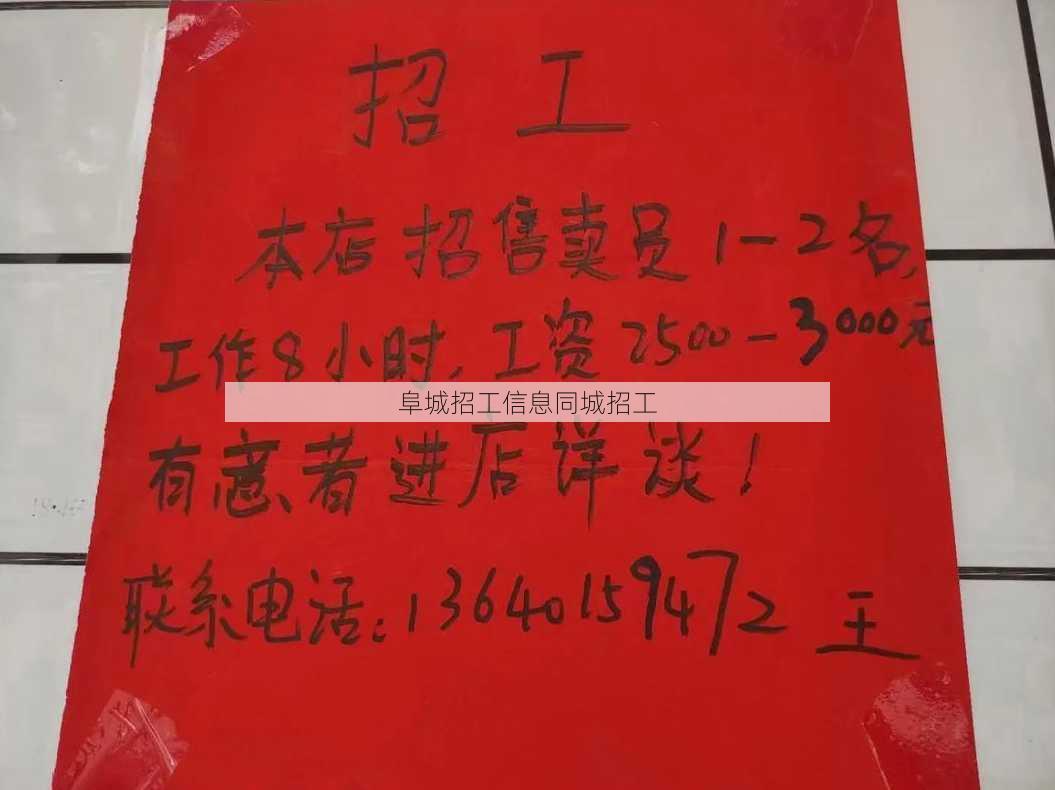 招工
本店招售卖员1-2名,
工作8小时,工资2500-3000元
阜城招工信息同城招工
有意者进店详谈!
联系电话:13640159472 王